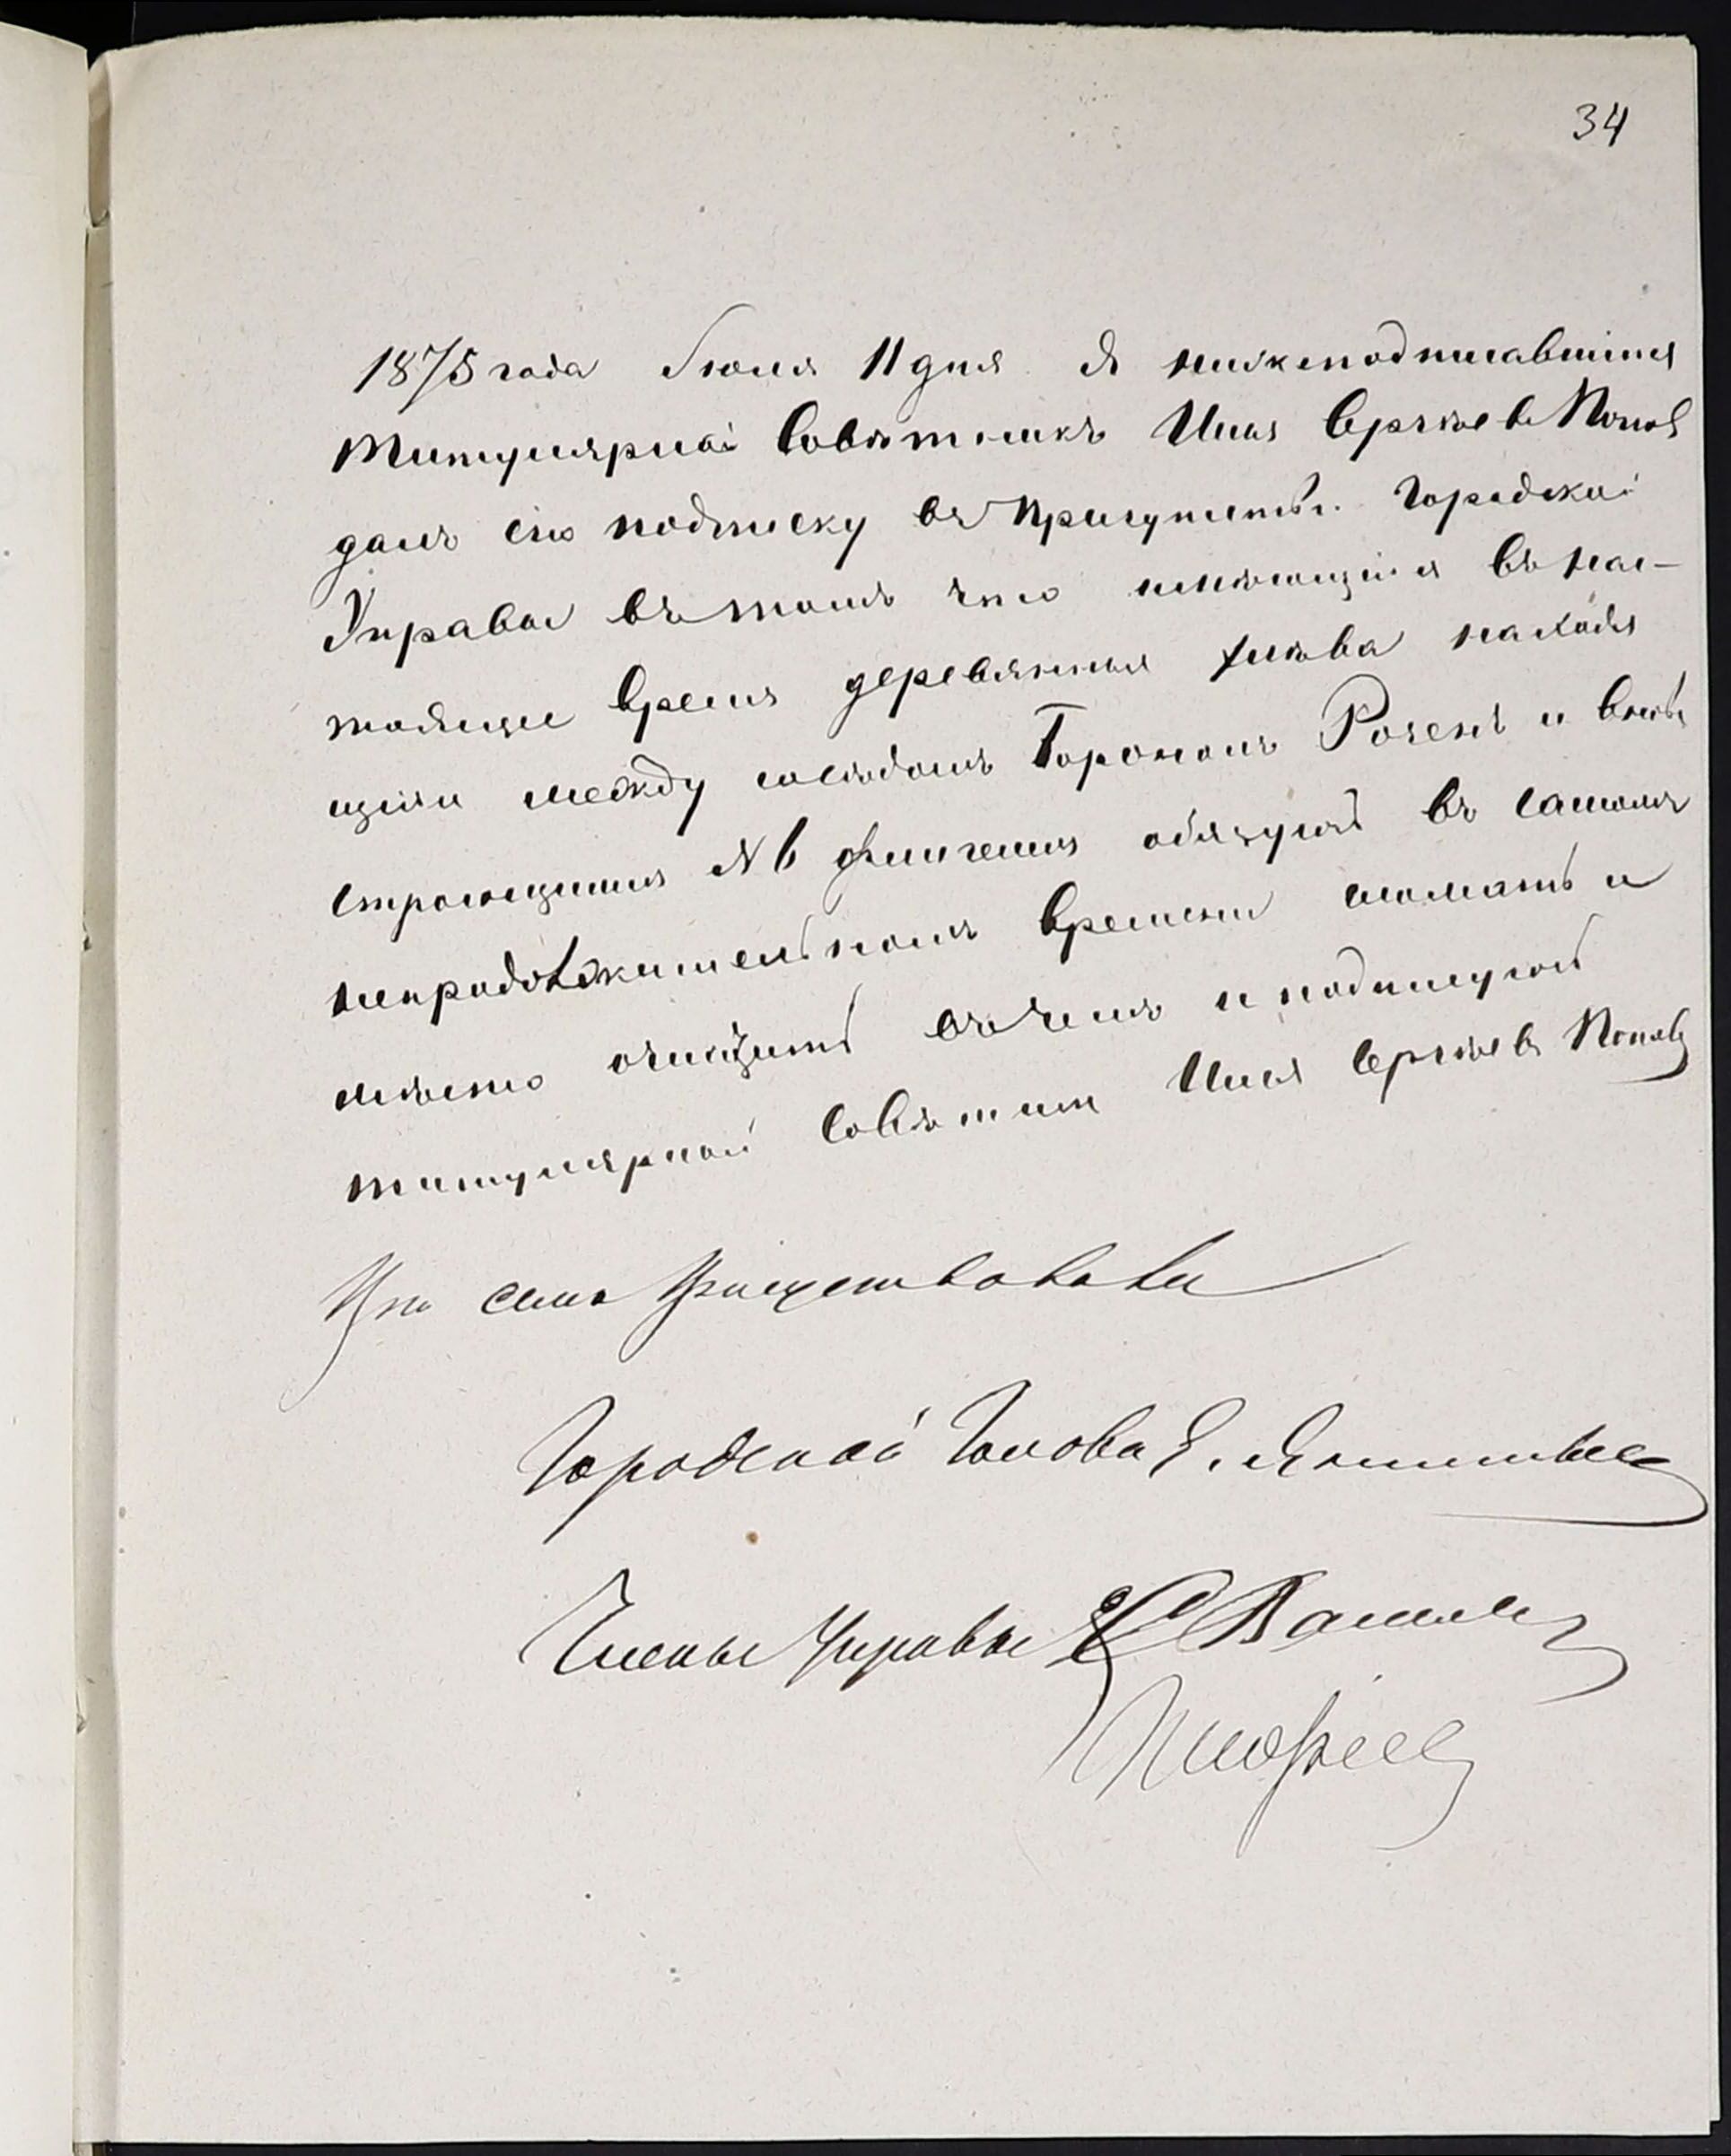 34
1875 года Июля 11 дня Я нижеподписавшійся
Титулярной Советникъ Илья Сергѣевъ Поповъ
далъ сію подписку въ присуцтвіи Городской
Управы въ томъ что имѣющіися въ нас-
тоящее время деревянныя хлѣва находя
щіяи между соседомъ Борономъ Розенъ и вновь
строющимся флигелемъ обязуюсь въ самомъ
непродолжительномъ времени сломать и
мѣсто очистить въ чемъ и подписуюсь
титулярной Советник Илья Сергѣевъ Поповъ
При семъ присуцтвовали
Городской Голова Е.
Члены Управы